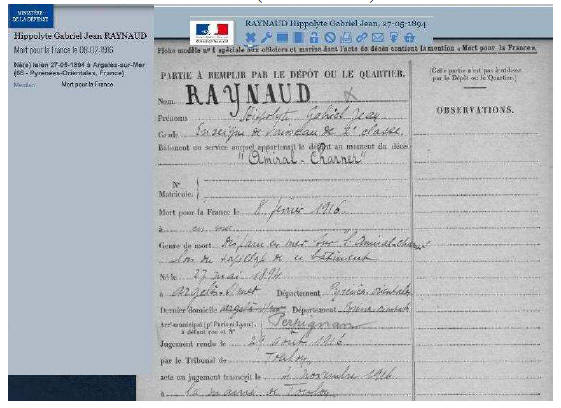 MINISTÈRE
DE LA DÉFENSE
Hippolyte Gabriel Jean RAYNAUD
Mort pour la France le 08-02-1916
Né(e) le/en 27-05-1894 à Argelès-sur-Mer
(66 - Pyrénées-Orientales, France)
Mention Mort pour la France
RAYNAUD Hippolyte Gabriel Jean, 27-05-1894
Fiche modèle nº 1 spéciale aux officiers et marins dont l'acte de décès contient la mention « Mort pour la France ».
PARTIE À REMPLIR PAR LE DÉPÔT OU LE QUARTIER.
Nom RAYNAUD
Prénoms Hippolyte Gabriel Jean
Grade Enseigne de Vaisseau de 2e classe
Bâtiment ou service auquel appartenait le défunt au moment du décès
"Amiral-Charner"
Nº
Matricule.
Mort pour la France le 8 février 1916
à en mer
Genre de mort disparu en mer sur l'Amiral-Charner
lors du de ce bâtiment
Né le 27 mai 1894
à Argelès s/mer Département Pyrénées orientales
Dernier domicile Argelès s/mer Département
Arrt municipal (pr Paris et Lyon), à défaut rue et Nº Perpignan
Jugement rendu le 29 août 1916
par le Tribunal de Toulon
acte ou jugement transcrit le 4 novembre 1916
à la mairie de Toulon
(Cette partie n'est pas à utiliser
par le Dépôt ou le Quartier.)
OBSERVATIONS.